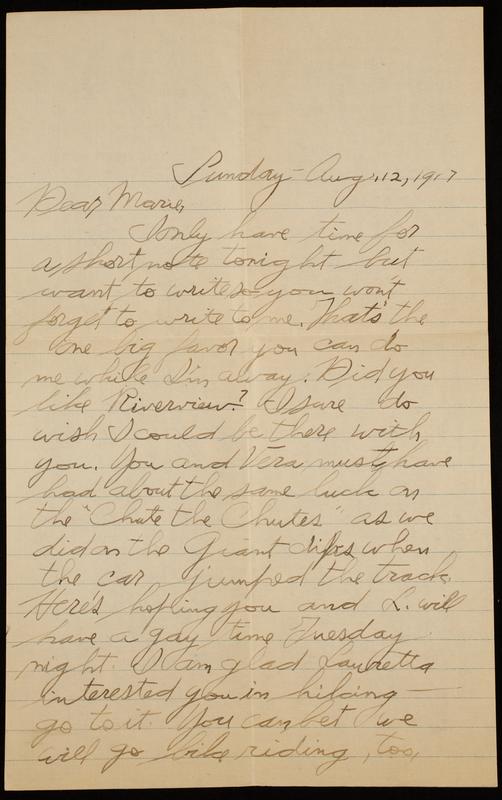 Sunday - Aug. 12, 1917
Dear Marie,
I only have time for
a short note tonight but
want to write so you wont
forget to write to me. That's the
one big favor you can do
me while I'm away. Did you
like Riverview? I sure do
wish I could be there with
you. You and Vera must have
had about the same luck on
the "Chute the Chutes" as we
did on the Giant dips when
the car jumped the track.
Here's hopeing you and L. will
have a gay time Tuesday
night. I am glad Lauretta
interested you in hiking —
go to it. You can bet we
will go bike riding, too,